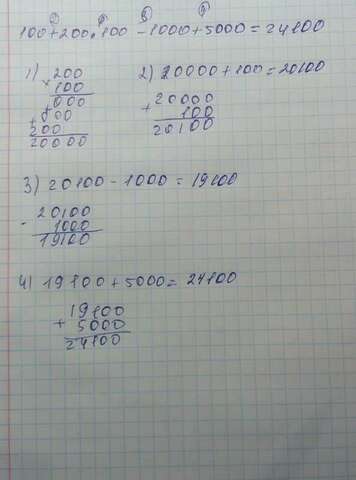 ② ① ③ ④
100+200·100-1000+5000=24100
1) 200
× 100
000
+ 000
200
20000
2) 20000+100=20100
20000
+ 100
20100
3) 20100-1000=19100
20100
- 1000
19100
4) 19100+5000=24100
19100
+ 5000
24100